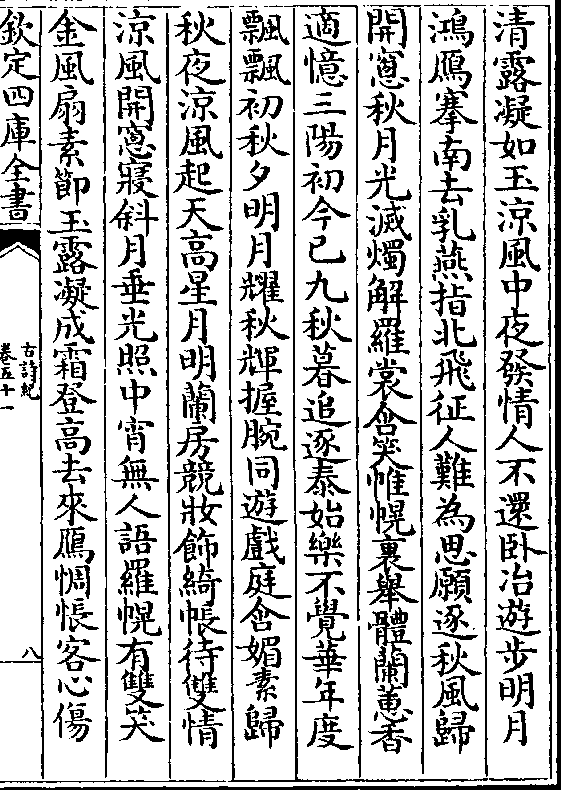 清露凝如玉涼風中夜發情人不還臥冶遊步明月
鴻鴈搴南去乳燕指北飛征人難為思願逐秋風歸
開窻秋月光滅燭解羅裳含笑帷幌裏舉體蘭蕙香
適憶三陽初今已九秋暮追逐泰始樂不覺華年度
飄飄初秋夕明月耀秋輝握腕同遊戲庭含媚素歸
秋夜涼風起天高星月明蘭房競妝飾綺帳待雙情
涼風開窻寢斜月垂光照中宵無人語羅幌有雙笑
金風扇素節玉露凝成霜登高去來鴈惆悵客心傷
欽定四庫全書
古詩紀
卷五十一
八